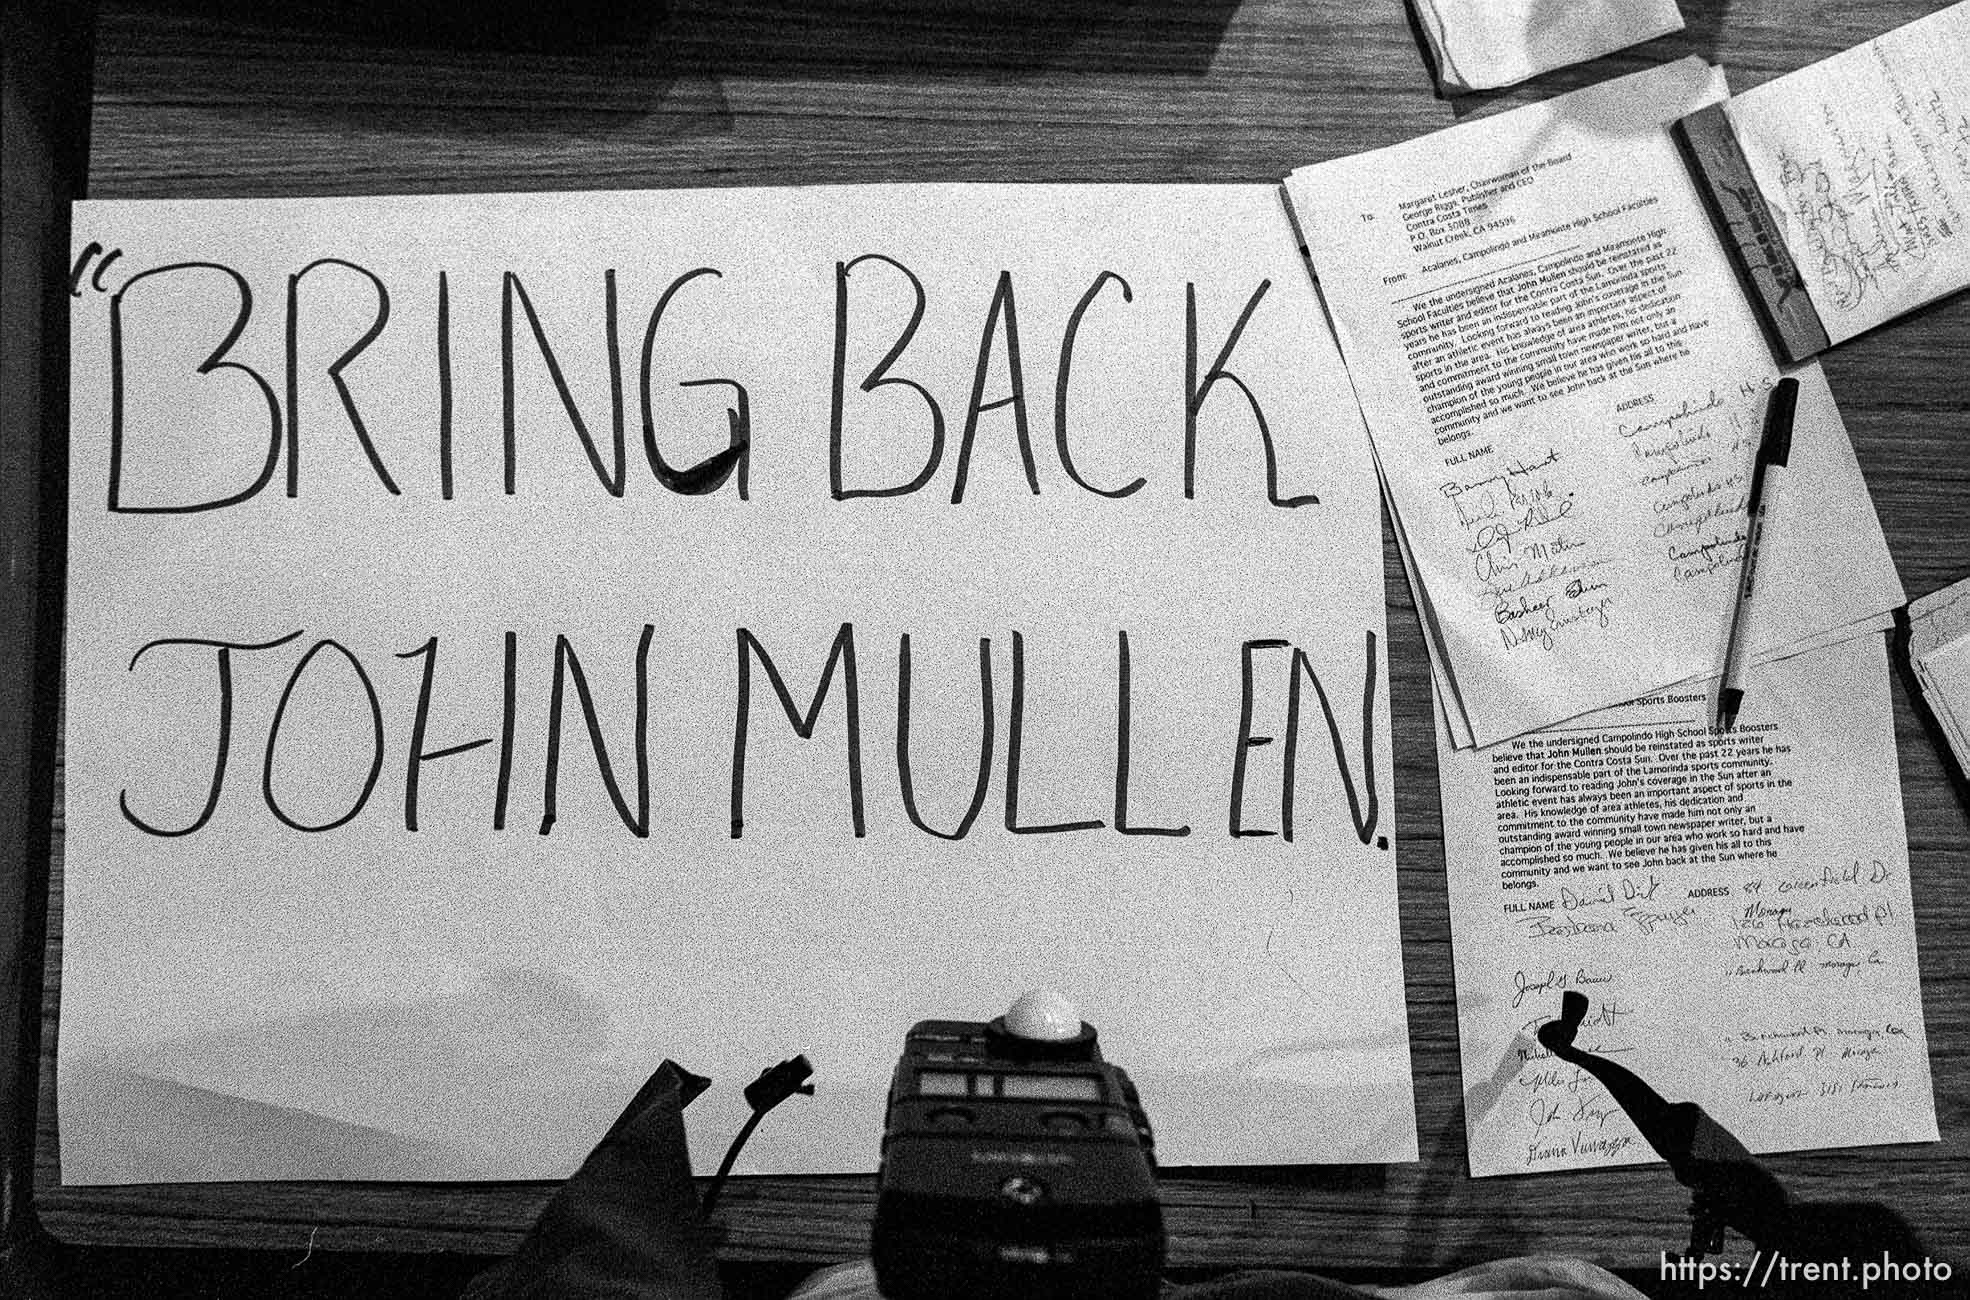 "BRING BACK
JOHN MULLEN.
To: Margaret Lesher, Chairwoman of the Board
George Riggs, Publisher and CEO
Contra Costa Times
P.O. Box 5088
Walnut Creek, CA 94596
From: Acalanes, Campolindo and Miramonte High School Faculties
We the undersigned Acalanes, Campolindo and Miramonte High
School Faculties believe that John Mullen should be reinstated as
sports writer and editor for the Contra Costa Sun. Over the past 22
years he has been an indispensable part of the Lamorinda sports
community. Looking forward to reading John's coverage in the Sun
after an athletic event has always been an important aspect of
sports in the area. His knowledge of area athletes, his dedication
and commitment to the community have made him not only an
outstanding award winning small town newspaper writer, but a
champion of the young people in our area who work so hard and have
accomplished so much. We believe he has given his all to this
community and we want to see John back at the Sun where he
belongs.
FULL NAME ADDRESS
Campolindo H.S.
Campolindo
Campolindo HS
Chris
Campolindo HS
Campolindo
Basheer Campolindo
Nancy Campolindo
Sports Boosters
We the undersigned Campolindo High School Sports Boosters
believe that John Mullen should be reinstated as sports writer
and editor for the Contra Costa Sun. Over the past 22 years he has
been an indispensable part of the Lamorinda sports community.
Looking forward to reading John's coverage in the Sun after an
athletic event has always been an important aspect of sports in the
area. His knowledge of area athletes, his dedication and
commitment to the community have made him not only an
outstanding award winning small town newspaper writer, but a
champion of the young people in our area who work so hard and have
accomplished so much. We believe he has given his all to this
community and we want to see John back at the Sun where he
belongs.
FULL NAME David ADDRESS 84 Greenfield Dr
Moraga
Barbara 126 Hazelwood Pl.
Moraga CA
Joseph G Bauer " Birchwood Pl Moraga Ca
" Birchwood Pl Moraga, Ca
36 Ashford Pl Moraga
John
Diana
https://trent.photo